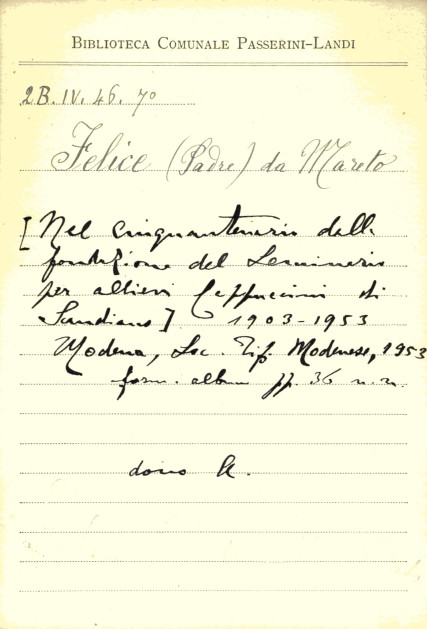 BIBLIOTECA COMUNALE PASSERINI-LANDI
2B. IV. 46. 7º
Felice (Padre) da Mareto
[Nel cinquantenario dalla
fondazione del Seminario
per allievi Cappuccini di
Scandiano] 1903-1953
Modena, Soc. Tip. Modenese, 1953
form. album pp. 36 n.n.
dono